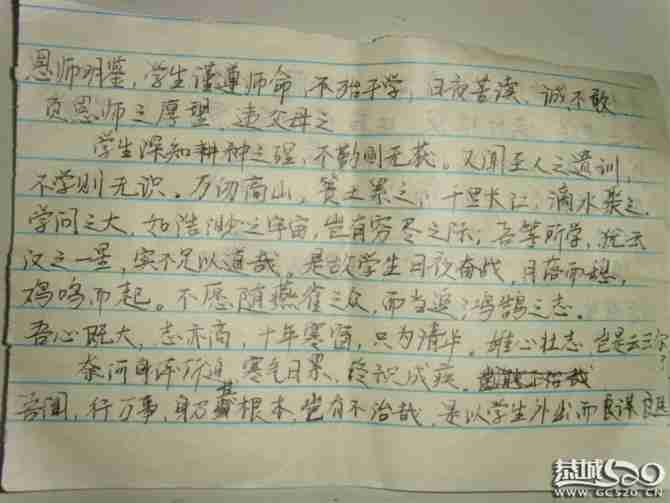 恩师明鉴，学生谨遵师命，不殆于学，日夜苦读，诚不敢
负恩师之厚望，违父母之
学生深知耕种之理，不勤则无获。又闻至人之遗训，
不学则无识。万仞高山，篑土累之，千里长江，滴水聚之。
学问之大，如浩渺之宇宙，岂有穷尽之际；吾等所学，犹云
汉之一星，实不足以道哉。是故学生日夜奋战，月落而息，
鸡鸣而起。不愿随燕雀之众，而当逐鸿鹄之志。
吾心既大，志亦高，十年寒窗，只为清华。雄心壮志，岂是
奈何身体所迫，寒气日累，终积成疾。
吾闻，行万事，身乃其根本，岂有不治哉，是以学生外出而
恭城520
WWW.GC520.CN